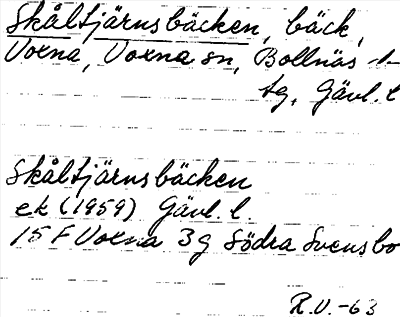 Skåltjärnsbäcken, bäck,
Voxna, Voxna sn, Bollnäs 1-
tg, Gävl. l
Skåltjärnsbäcken
ek (1959) Gävl. l.
15 F Voxna 3g Södra Svensbo
R.V.-63